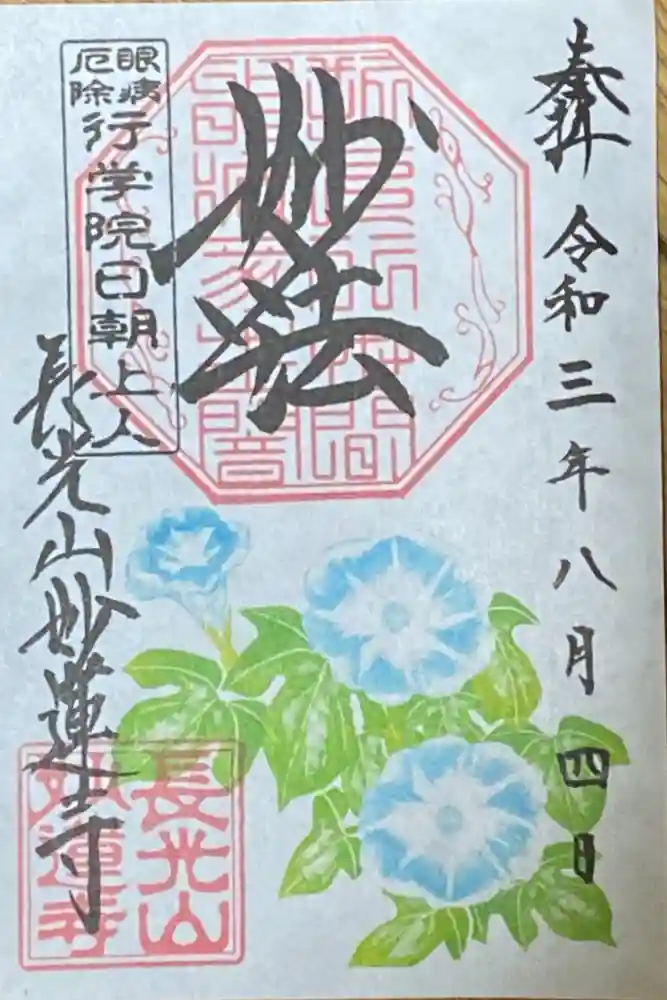 奉拝
令和三年八月四日
妙法
眼病
厄除
行学院日朝上人
長光山妙蓮寺
長光山
妙蓮寺